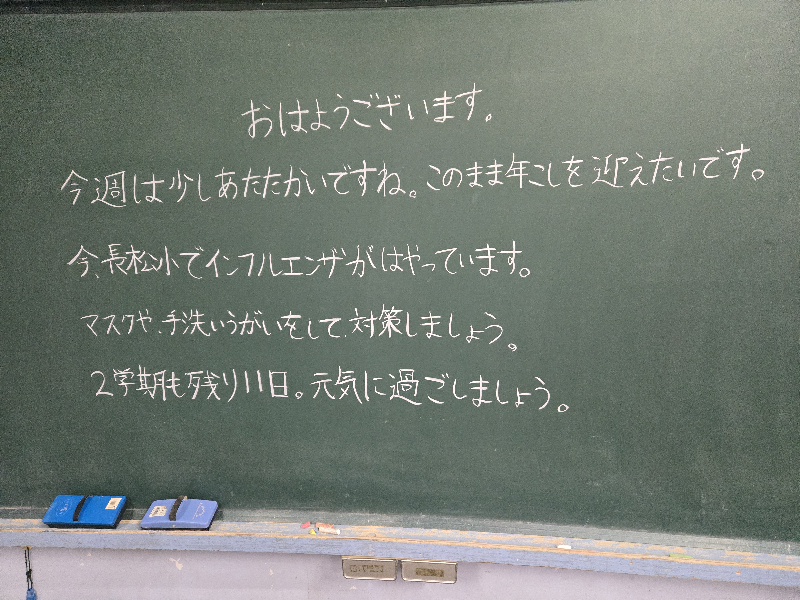 おはようございます。
今週は少しあたたかいですね。このまま年こしを迎えたいです。
今、長松小でインフルエンザがはやっています。
マスクや、手洗いうがいをして、対策しましょう。
2学期も残り11日。元気に過ごしましょう。